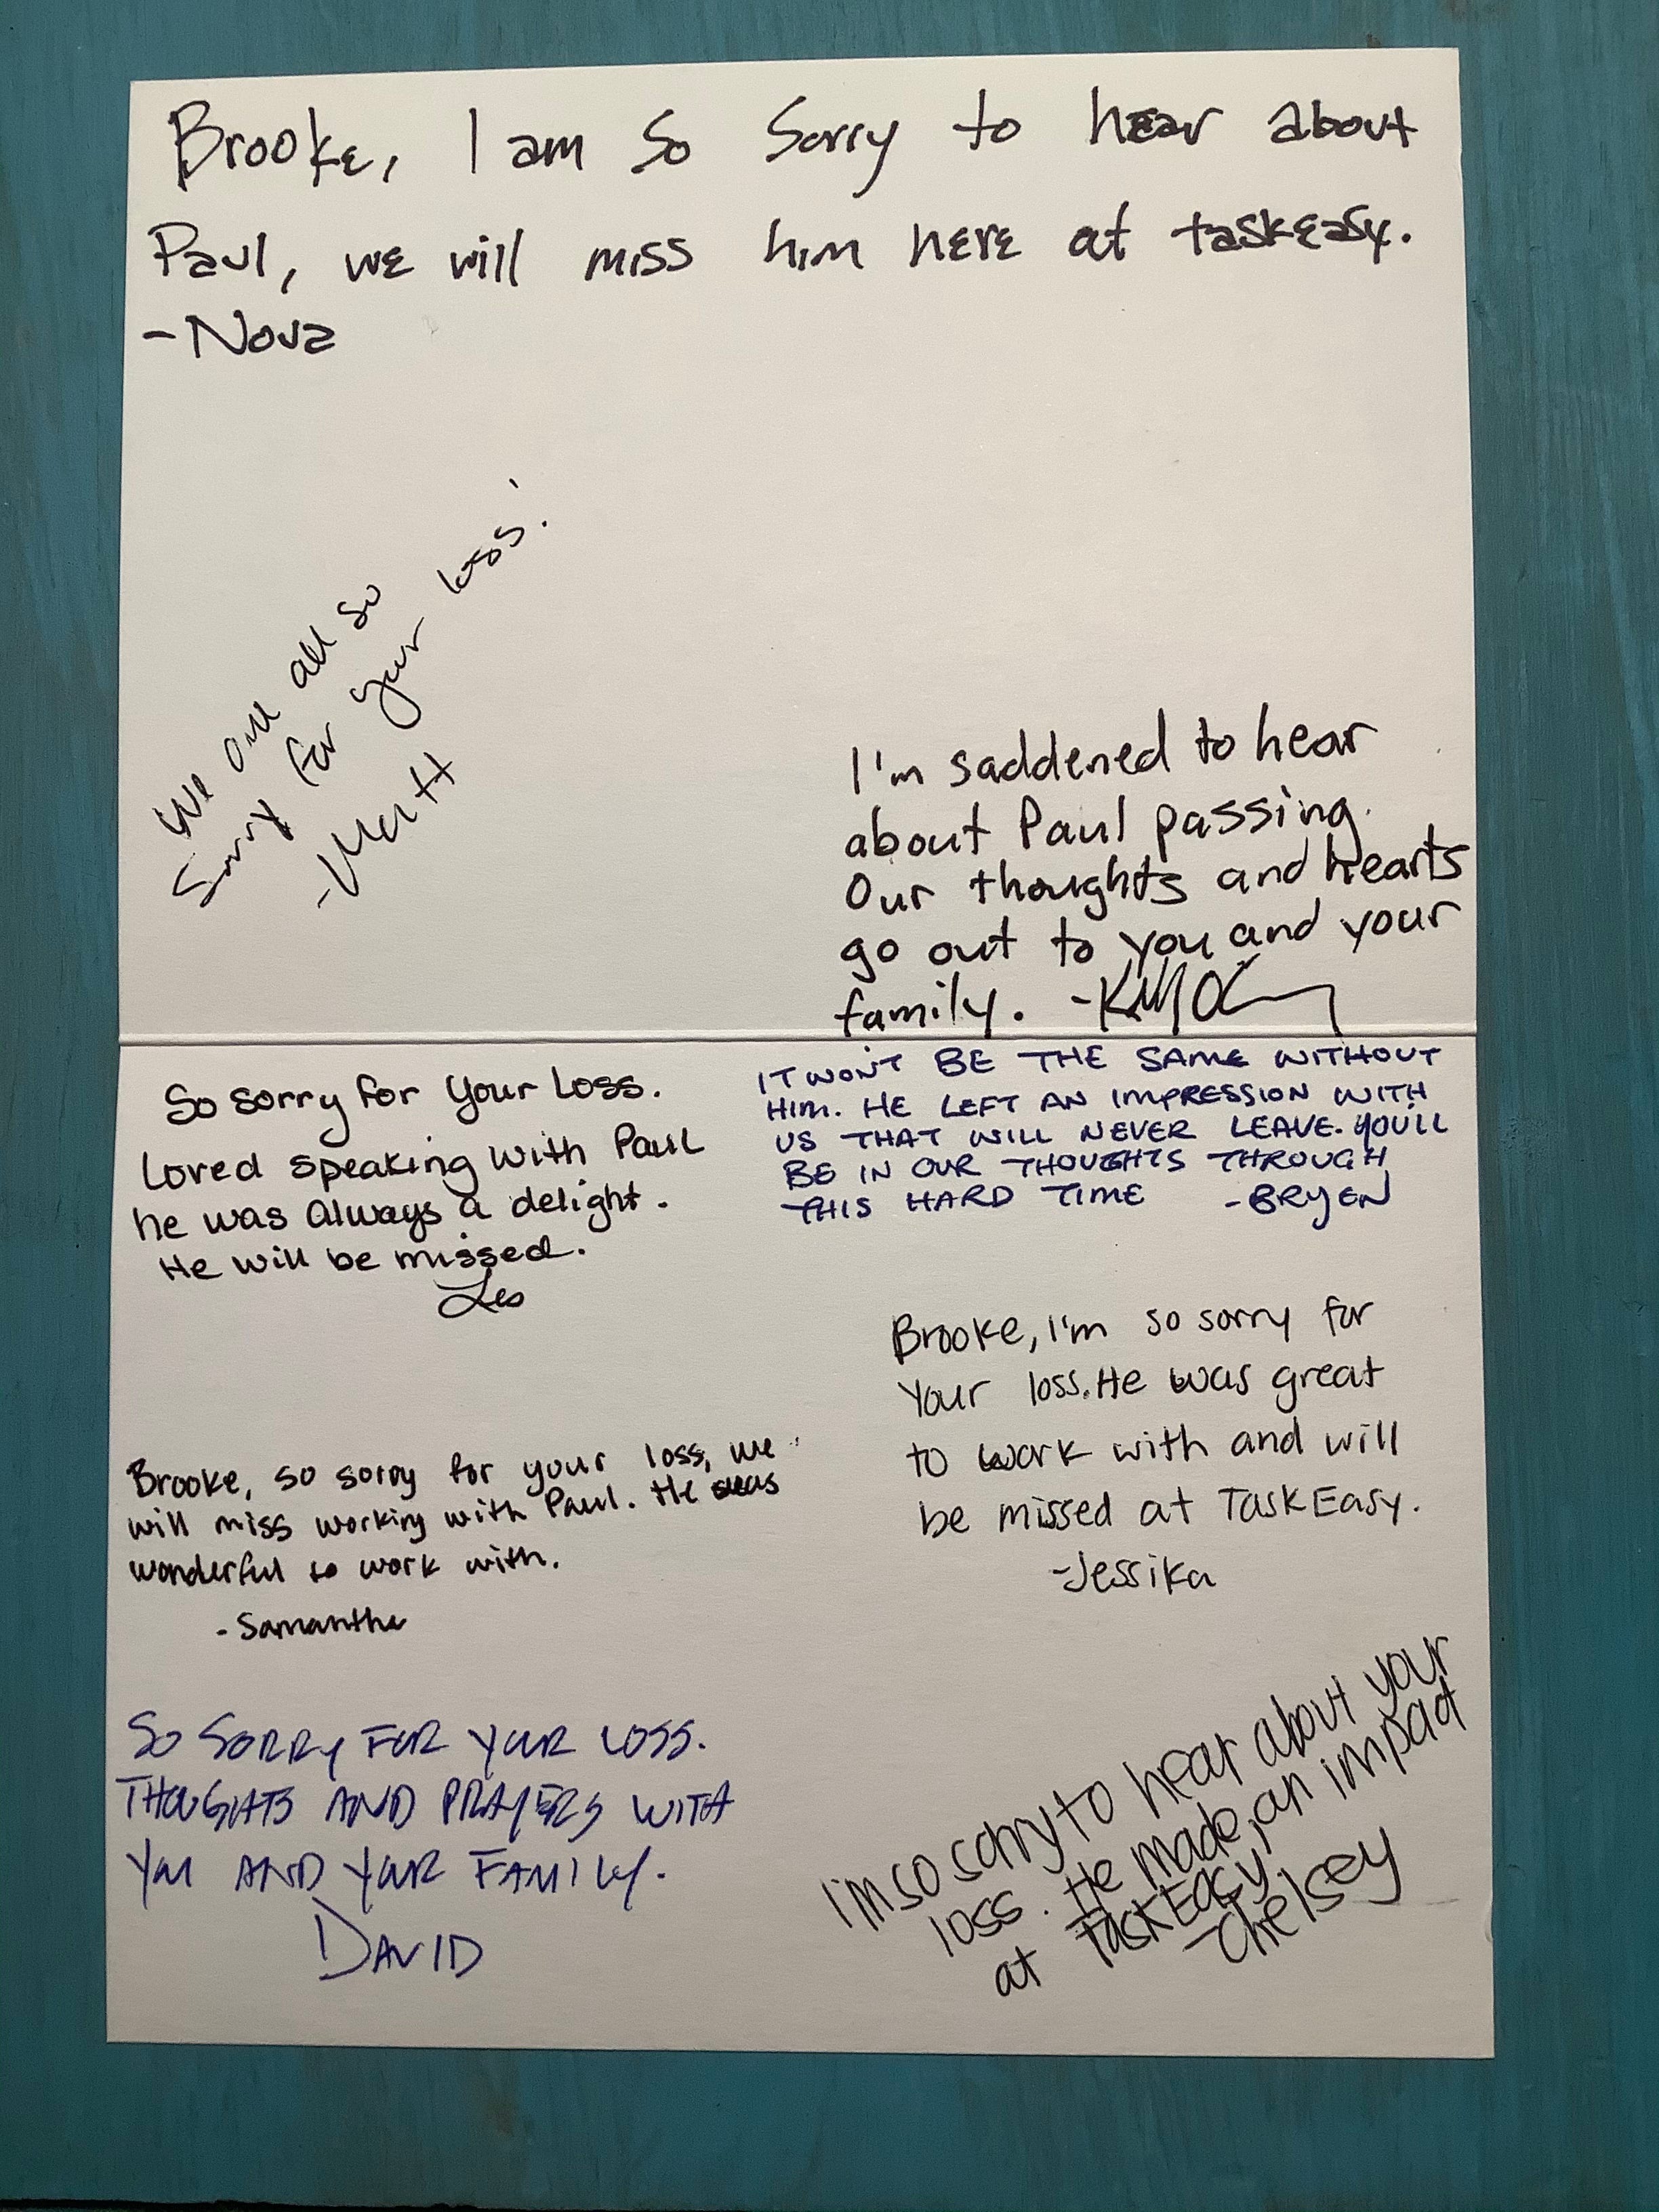 Brooke, I am so sorry to hear about
Paul, we will miss him here at taskeasy.
-Nova
We are all so
sorry for your loss!
-Matt
I'm saddened to hear
about Paul passing.
Our thoughts and hearts
go out to you and your
family.
So sorry for your Loss.
Loved speaking with Paul
he was always a delight.
He will be missed.
Les
IT WON'T BE THE SAME WITHOUT
HIM. HE LEFT AN IMPRESSION WITH
US THAT WILL NEVER LEAVE. YOU'LL
BE IN OUR THOUGHTS THROUGH
THIS HARD TIME -BRYEN
Brooke, I'm so sorry for
your loss. He was great
to work with and will
be missed at TaskEasy.
-Jessika
Brooke, so sorry for your loss, we
will miss working with Paul. He was
wonderful to work with.
-Samantha
SO SORRY FOR YOUR LOSS.
THOUGHTS AND PRAYERS WITH
YOU AND YOUR FAMILY.
DAVID
I'm so sorry to hear about your
loss. He made an impact
at TaskEasy.
-Chelsey